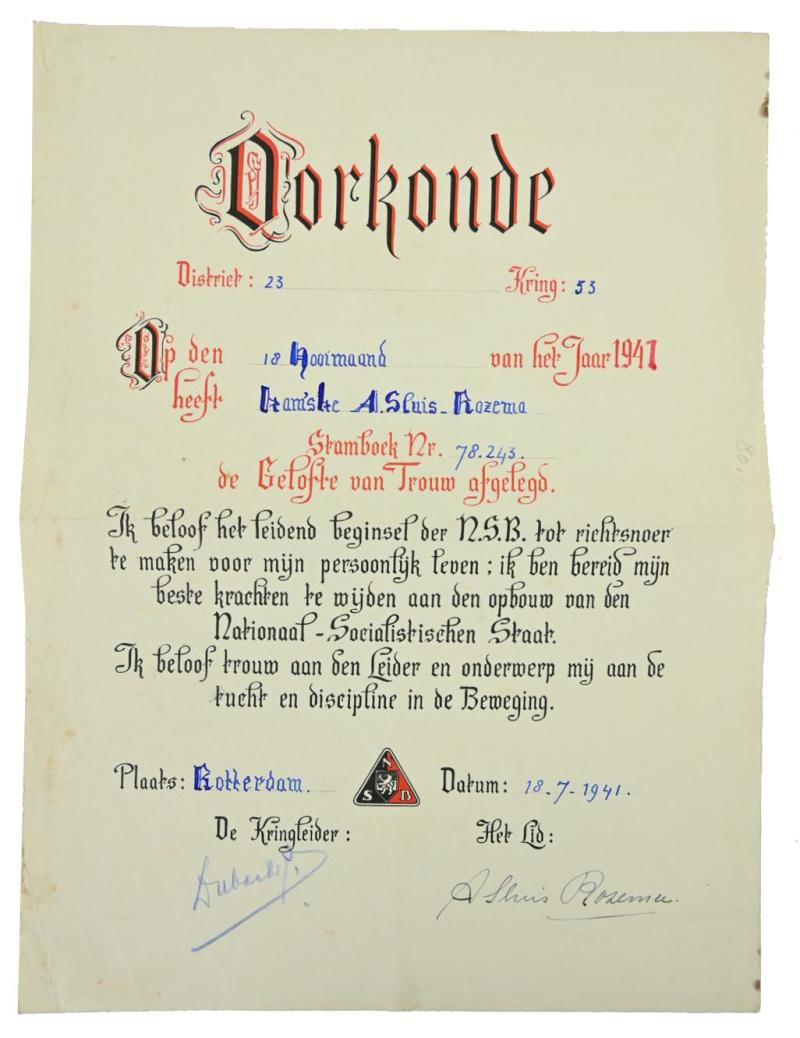 Oorkonde
District: 23 Kring: 53
Op den 18 Hooimaand van het Jaar 1941
heeft A. Sluis-Rozema
Stamboek Nr. 78.243.
de Gelofte van Trouw afgelegd.
Ik beloof het leidend beginsel der N.S.B. tot richtsnoer
te maken voor mijn persoonlijk leven; ik ben bereid mijn
beste krachten te wijden aan den opbouw van den
Nationaal-Socialistischen Staat.
Ik beloof trouw aan den Leider en onderwerp mij aan de
tucht en discipline in de Beweging.
Plaats: Rotterdam. N S B Datum: 18-7-1941.
De Kringleider: Het Lid:
A Sluis Rozema.
80,-